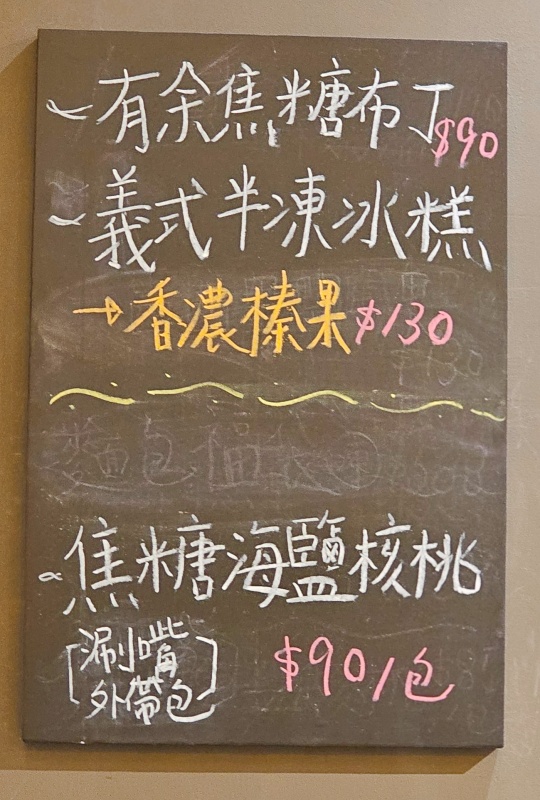 ~有余焦糖布丁$90
~義式半凍冰糕
→香濃榛果$130
~焦糖海鹽核桃
[涮嘴
外帶包] $90/包